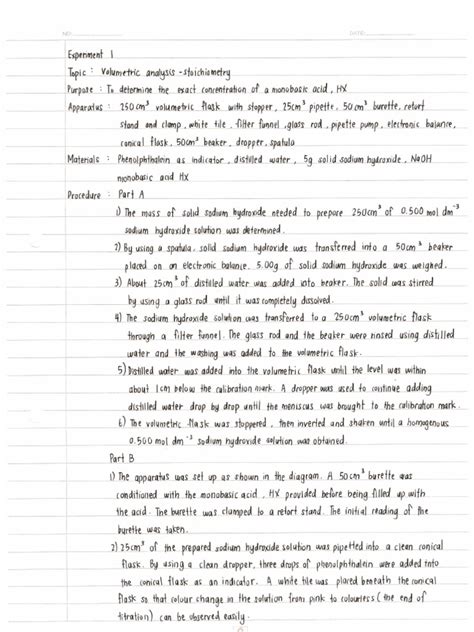 NO:
DATE:
Experiment 1
Topic : Volumetric analysis - stoichiometry
Purpose : To determine the exact concentration of a monobasic acid , HX
Apparatus : 250 cm³ volumetric flask with stopper, 25cm³ pipette, 50 cm³ burette, retort
stand and clamp, white tile , filter funnel , glass rod , pipette pump , electronic balance,
conical flask, 50cm³ beaker, dropper, spatula
Materials : Phenolphthalein as indicator , distilled water , 5g solid sodium hydroxide , NaOH
monobasic acid HX
Procedure : Part A
1) The mass of solid sodium hydroxide needed to prepare 250cm³ of 0.500 mol dm⁻³
sodium hydroxide solution was determined.
2) By using a spatula, solid sodium hydroxide was transferred into a 50cm³ beaker
placed on an electronic balance. 5.00g of solid sodium hydroxide was weighed.
3) About 25cm³ of distilled water was added into beaker. The solid was stirred
by using a glass rod until it was completely dissolved.
4) The sodium hydroxide solution was transferred to a 250cm³ volumetric flask
through a filter funnel. The glass rod and the beaker were rinsed using distilled
water and the washing was added to the volumetric flask.
5) Distilled water was added into the volumetric flask until the level was within
about 1cm below the calibration mark. A dropper was used to continue adding
distilled water drop by drop until the meniscus was brought to the calibration mark.
6) The volumetric flask was stoppered , then inverted and shaken until a homogenous
0.500 mol dm⁻³ sodium hydroxide solution was obtained.
Part B
1) The apparatus was set up as shown in the diagram. A 50cm³ burette was
conditioned with the monobasic acid , HX provided before being filled up with
the acid. The burette was clamped to a retort stand. The initial reading of
the burette was taken.
2) 25cm³ of the prepared sodium hydroxide solution was pipetted into a clean conical
flask. By using a clean dropper, three drops of phenolphthalein were added into
the conical flask as an indicator. A white tile was placed beneath the conical
flask so that colour change in the solution from pink to colourless ( the end of
titration) can be observed easily.